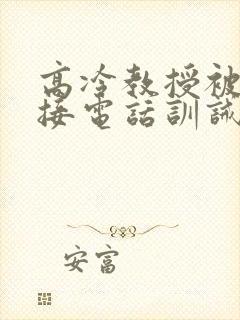 高冷教授被
接電話訓誡
安富